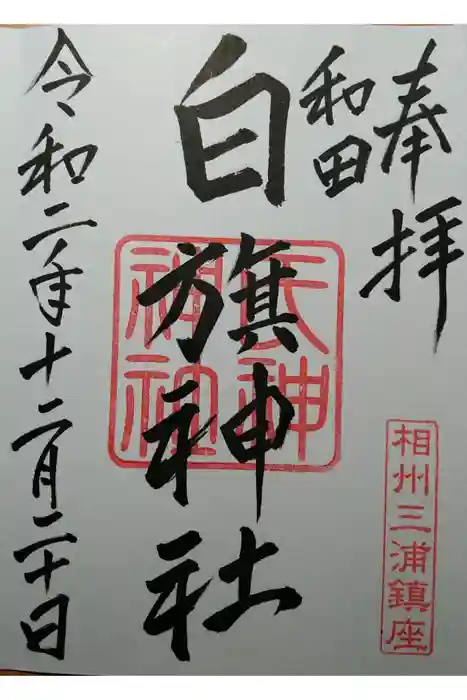 奉拝
和田
白旗神社
令和二年十二月二十日
相州三浦鎮座
氏神
神社